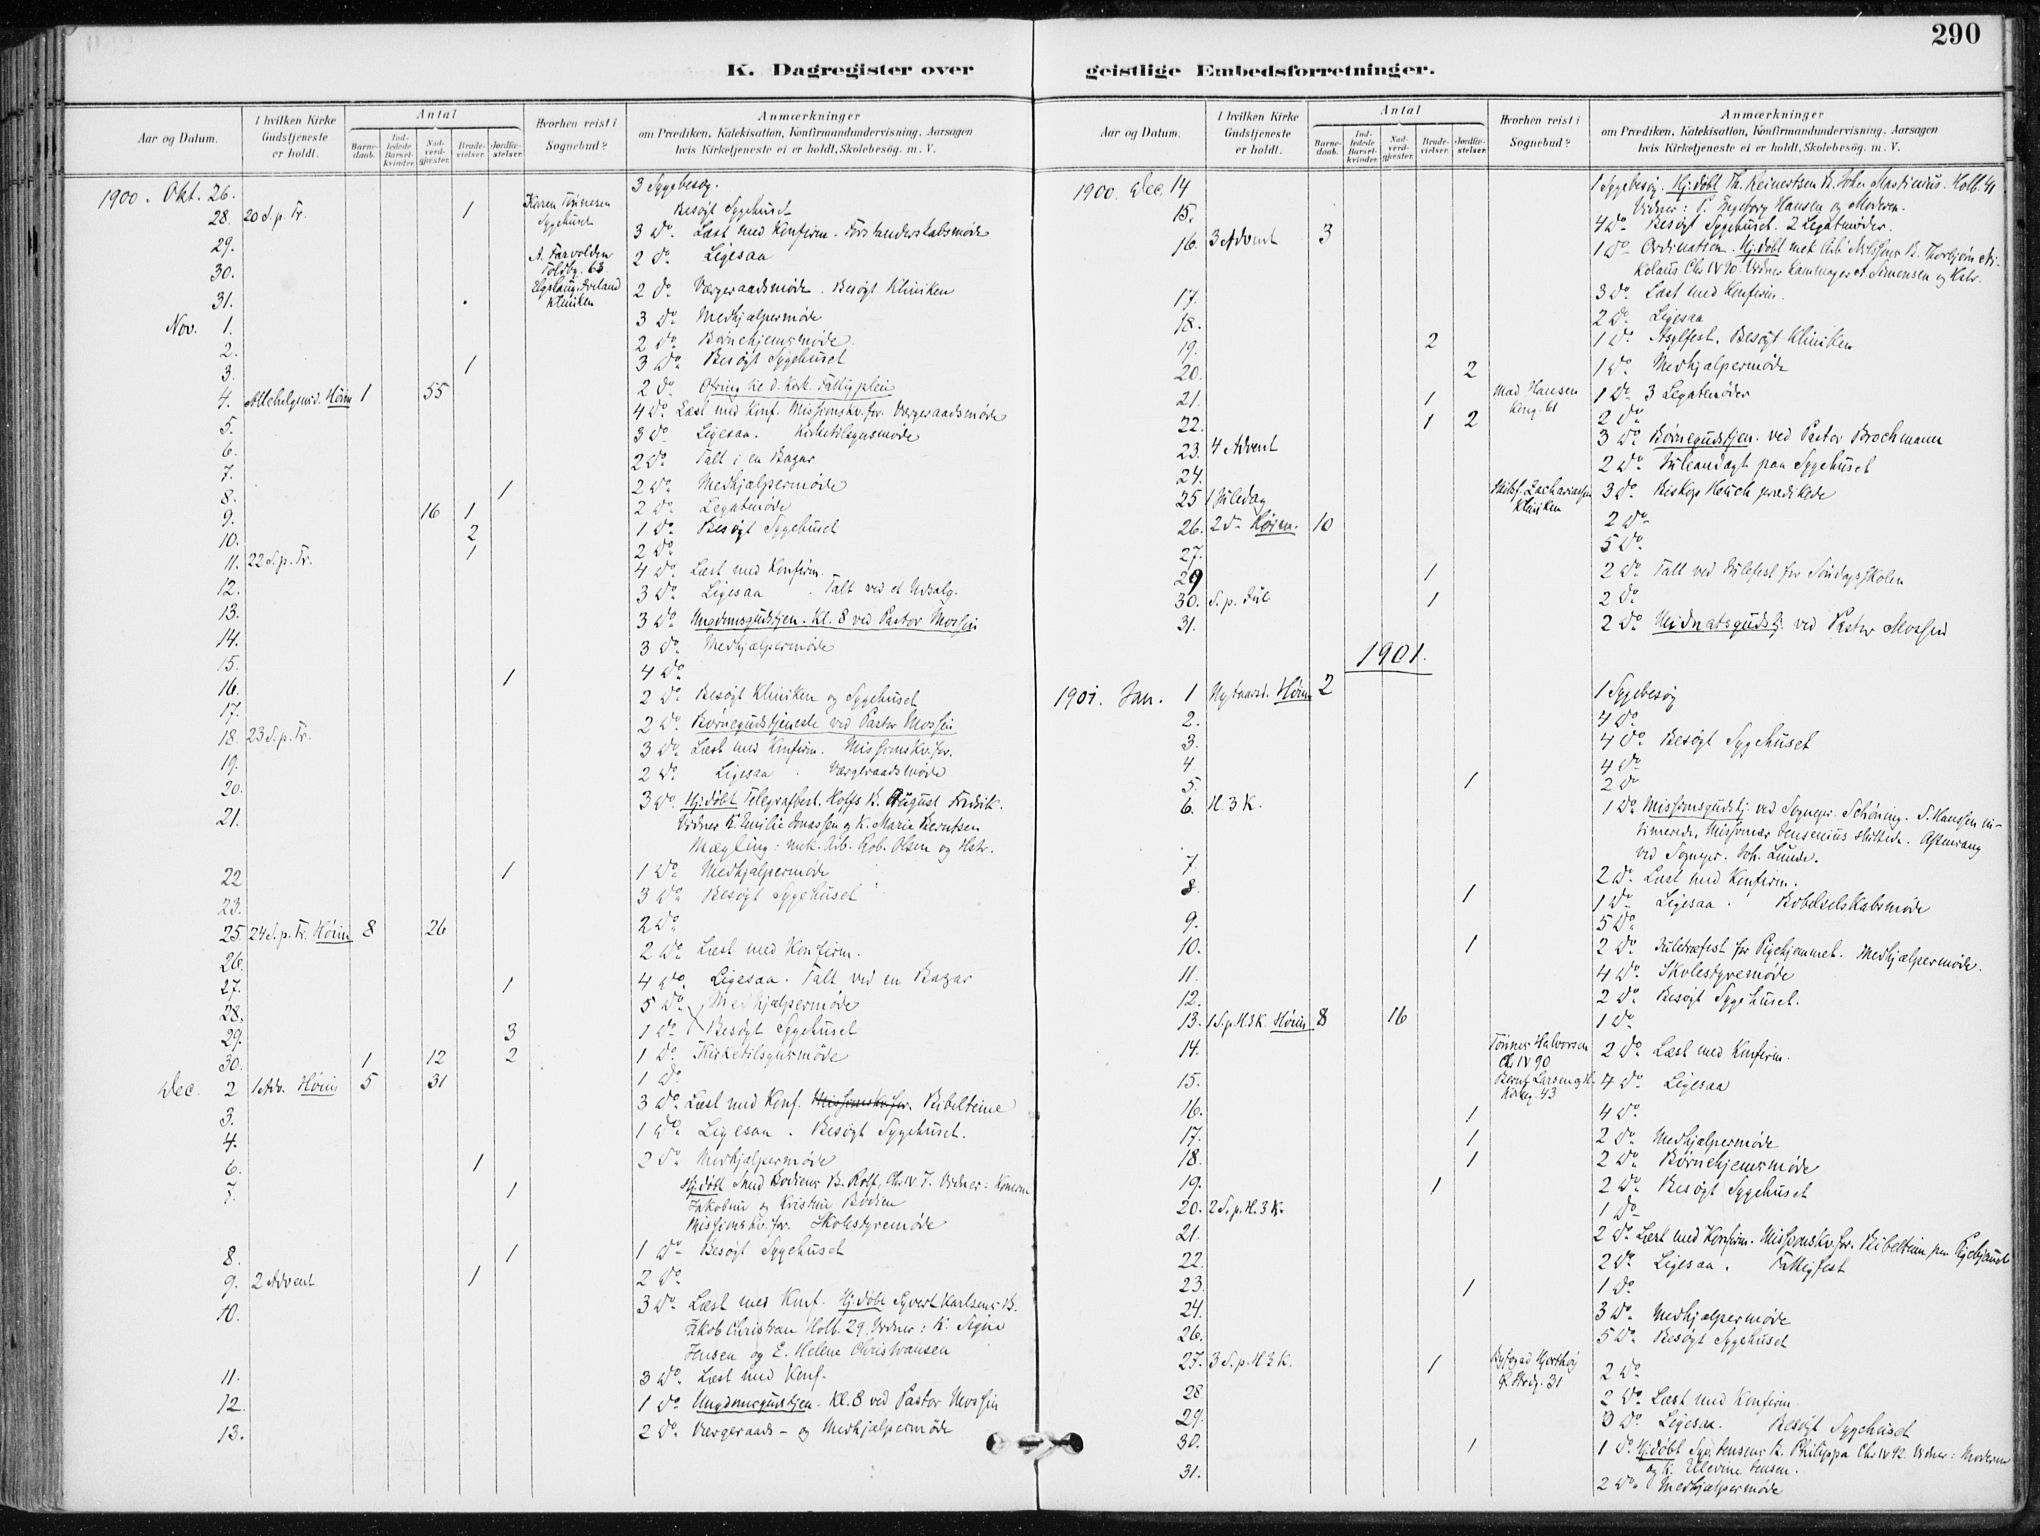 290
K. Dagregister over geistlige Embedsforretninger.
Aar og Datum. I hvilken Kirke Gudstjeneste er holdt. Antal Barnedaab. Indledede Barselkvinder. Nadverdgjester. Brudevielser. Jordfæstelser. Hvorhen reist i Sognebud? Anmærkninger om Prædiken, Katekisation, Konfirmandundervisning, Aarsagen hvis Kirketjeneste ei er holdt, Skolebesøg. m. V.
1900. Okt. 26. 3 Sygebesøg.
28. 20 S. p. Tr. 1 Karen Tønnesen Sygehuset Besøgt Sygehuset
29. 3 Do. Læst med Konfirm. Forstanderskabsmøde
30. A. Farvolden 63 2 Do. Ligesaa
31. Kliniken 2 Do. Værgeraadsmøde. Besøgt Kliniken
Nov. 1. 3 Do. Medhjælpermøde
2. 2 Do. Børnehjemsmøde
3. 1 3 Do. Besøgt Sygehuset
4. Allehelgensd. Høim 1 55 2 Do.
5. 4 Do. Læst med Konf. Missionskv. for. Værgeraadsmøde
6. 3 Do. Ligesaa. Kirketilsynsmøde
7. 2 Do. Talt i en Bazar
8. 1 2 Do. Medhjælpermøde
9. 16 1 2 Do. Legatmøde
10. 2 1 Do. Besøgt Sygehuset
11. 22 S. p. Tr. 1 2 Do.
12. 4 Do. Læst med Konfirm.
13. 3 Do. Ligesaa. Talt ved et Udsalg.
14. 3 Do. Ungdomsgudstjen. Kl. 8 ved Pastor Mossin
15. 3 Do. Medhjælpermøde
16. 1 4 Do.
17. 2 Do. Besøgt Kliniken og Sygehuset
18. 23 S. p. Tr. 2 Do. Børnegudstjeneste ved Pastor Mossin
19. 3 Do. Læst med Konfirm. Missionskv. for.
20. 2 Do. Ligesaa. Værgeraadsmøde
21. 3 Do. Hj. døbt Telegrafbest. Hoffs B. August Fredrik.
Vidner: K. Emilie Jonassen og K. Marie Berntsen
Mægling: Arb. Rob. Olsen og Hstr.
22 1 1 Do. Medhjælpermøde
23. 3 Do. Besøgt Sygehuset
25. 24 S. p. Tr. Høim 8 26 2 Do.
26. 2 Do. Læst med Konfirm.
27. 1 4 Do. Ligesaa. Talt ved en Bazar
28. 5 Do. Medhjælpermøde
29. 3 1 Do. Besøgt Sygehuset
30. 1 12 2 1 Do. Kirketilsynsmøde
Dec. 2 1 Adv. Høim 5 31 1 Do.
3. 3 Do. Læst med Konf. Missionskv. for. Bibeltime
4. 1 Do. Ligesaa. Besøgt Sygehuset.
6. 1 2 Do. Medhjælpermøde
7. 1 Hj. døbt Smed Bodiens B. Rolf, Ch. IV 7. Vidner: Konerne
Jakobine og Kristine Bødien
Missionskv. for. Skolestyremøde
8. 1 1 Do. Besøgt Sygehuset
9. 2 Advent 1 2 Do.
10. 3 Do. Læst med Konf. Hj. døbt Syvert Karlsens B.
Jakob Christian Holb. 29. Vidner: K. Signe
Jensen og E. Helene Christiansen
11. 3 Do. Læst med Konf.
12. 1 Do. Ungdomsgudstjen. Kl. 8 ved Pastor Mossin
13. 2 Do. Værgeraads- og Medhjælpermøde
Aar og Datum. I hvilken Kirke Gudstjeneste er holdt. Antal Barnedaab. Indledede Barselkvinder. Nadverdgjester. Brudevielser. Jordfæstelser. Hvorhen reist i Sognebud? Anmærkninger om Prædiken, Katekisation, Konfirmandundervisning, Aarsagen hvis Kirketjeneste ei er holdt, Skolebesøg. m. V.
1900. Dec. 14 1 Sygebesøg. Hj. døbt Th. Reinertsen B. John Martinius. Holb. 41
Vidner: Ingeborg Hansen og Moderen.
15. 4 Do. Besøgt Sygehuset. 2 Legatmøder.
16. 3 Advent 3 1 Do. Ordination. Hj. døbt B. Thorbjørn Nikolaus Ch. IV 90. Vidner A. Simonsen og Hstr.
17. 3 Do. Læst med Konfirm.
18. 2 Do. Ligesaa
19. 2 1 Do. Asylfest. Besøgt Kliniken
20. 2 1 Do. Medhjælpermøde
21. 1 Mad. Hansen Kong. 61 1 Do. 3 Legatmøder
22. 1 2 2 Do.
23. 4 Advent 3 Do. Børnegudstjen. ved Pastor Brochmann
24. 2 Do. Juleandagt paa Sygehuset
25 1 Juledag Zachariassen Kliniken 3 Do. Biskop Heuch prædikede
26. 2 D. Høim. 10 2 Do.
27. 5 Do.
29 1 2 Do. Talt ved Julefest for Søndagsskolen
30. S. p. Jul 1 2 Do.
31. 2 Do. Midnatsgudstj. ved Pastor Mossin
1901.
1901. Jan. 1 Nytaarsd. Høim 2 1 Sygebesøg
2. 4 Do.
3. 4 Do. Besøgt Sygehuset
4 4 Do.
5. 1 2 Do
6. H. 3 K. 1 Do. Missionsgudstj. ved Sognepr. Schøning. S. Hanssen intimerede, Missionær Jensenius skiltede. Aftensang
ved Sognepr. Joh. Lunde.
7 2 Do. Læst med Konfirm.
8. 1 1 Do. Ligesaa. Bibelselskabsmøde
9. 5 Do.
10. 1 2 Do. Juletræfest for Pigehjemmet. Medhjælpermøde.
11. 4 Do. Skolestyremøde
12. 2 Do. Besøgt Sygehuset.
13. 1 S. p. H. 3 K. Høim 8 16 1 Do.
14. Tønnes Halvorsen Ch. IV 90 2 Do. Læst med Konfirm.
15. Bernt Larsen og H. Kirkeg. 43 4 Do. Ligesaa
16. 1 4 Do.
17. 1 2 Do. Medhjælpermøde
18. 1 2 Do. Børnehjemsmøde
19. 1 2 Do. Besøgt Sygehuset
20. 2 S. p. H. 3 K. 1 Do.
21. 2 Do. Læst med Konfirm. Missionskv. for. Bibeltime paa Pigehjemmet
22. 2 Do. Ligesaa. Fattigfest
23. 1 1 Do.
24. 3 Do. Medhjælpermøde
26. 5 Do. Besøgt Sygehuset
27. 3 S. p. H 3 K. 1 31 2 Do.
28 2 Do. Læst med Konfirm.
29. 3 Do. Ligesaa. Besøgt Sygehuset
30. 1 1 Do. Hj. døbt Jensens B. Philippa Ch. IV 42. Vidner: Moderen
og K. Ellevine Jensen.
31. 2 Do. Medhjælpermøde